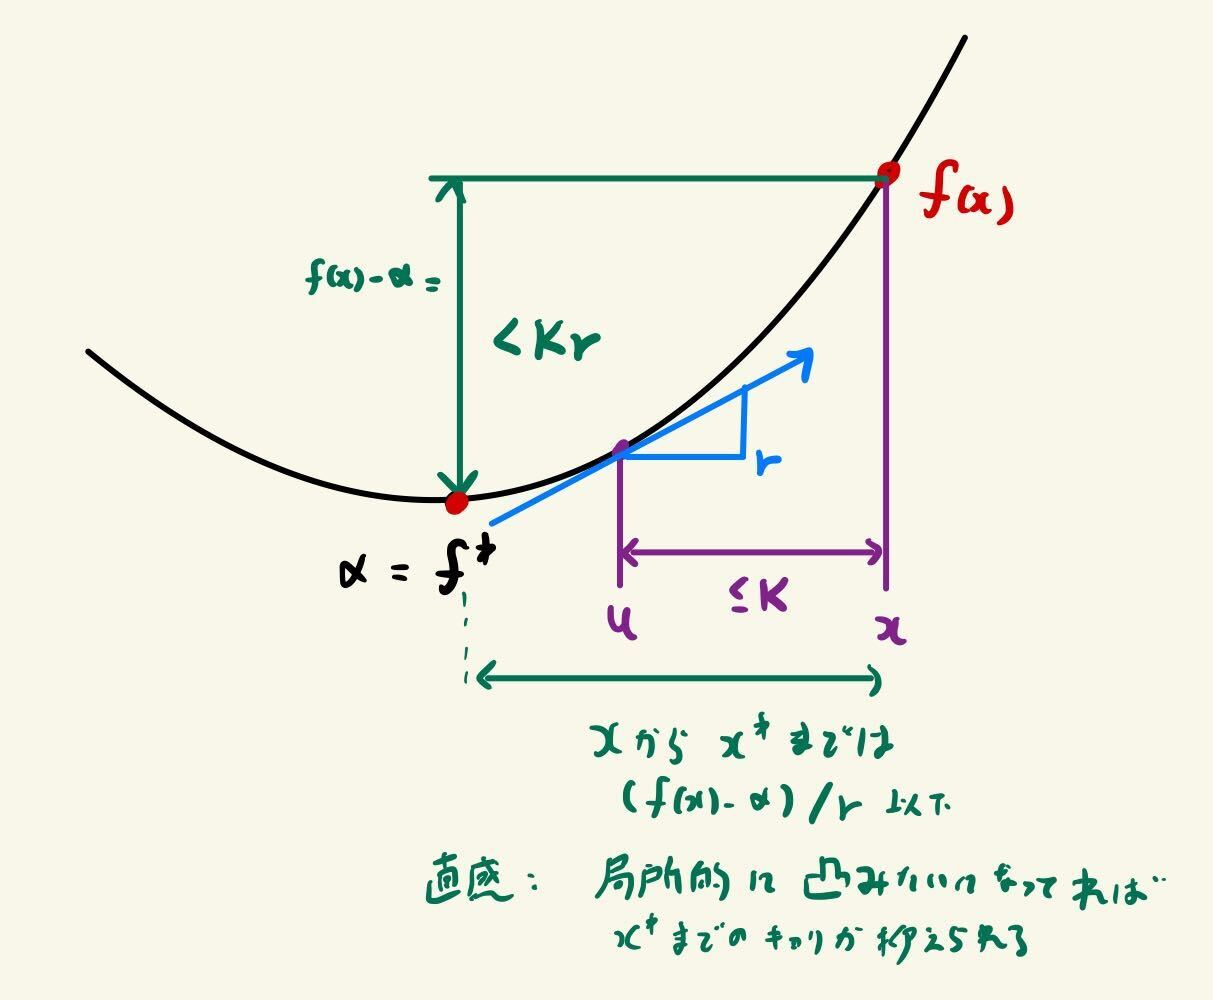 f(x)
f(x)-α =
<Kr
r
α = f*
≤K
u
x
xから x*までは
(f(x)-α)/r 以下
直感: 局所的に凸みたいになってれば
x*までのキョリが抑えられる